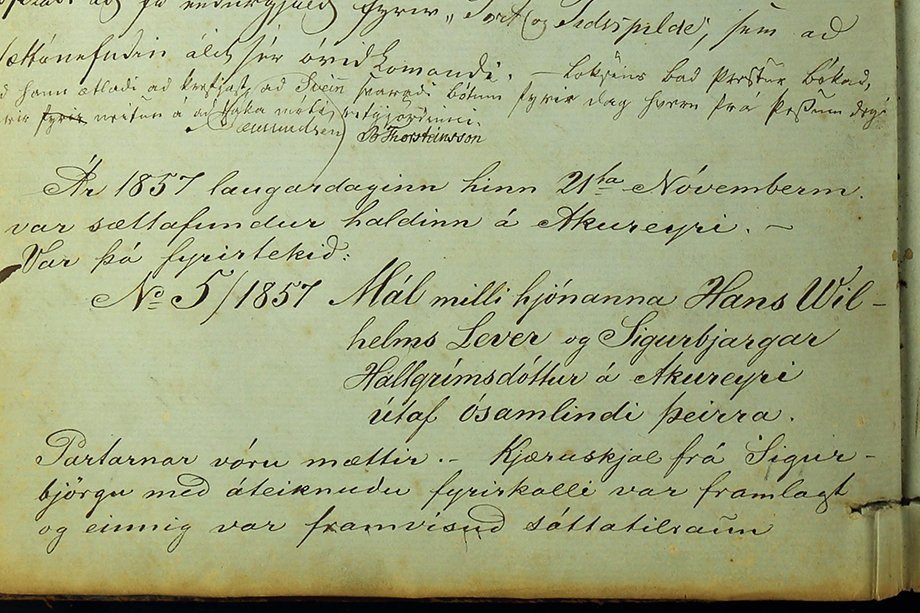 að fá endurgjald fyrir „Tort og Tidsspilde", sem að
sættanefndin áleit sér óviðkomandi. – Loksins bað Prestur bókað,
að hann ætlaði að krefjast að Sveinn svaraði bótum fyrir dag hvern frá þessum degi
fyrir neitun á að taka móti
Sæmundsen
B Thorsteinsson
Ár 1857 laugardaginn hinn 21ta Nóvemberm.
var sættafundur haldinn á Akureyri. –
Var þá fyrirtekið:
No 5/1857 Mál milli hjónanna Hans Wil-
helms Lever og Sigurbjargar
Hallgrímsdóttur á Akureyri
útaf ósamlindi þeirra.
Partarnar vóru mættir. – Kjæruskjal frá Sigur-
björgu með áteiknuðu fyrirkalli var framlagt
og einnig var framvísuð sáttatilraun